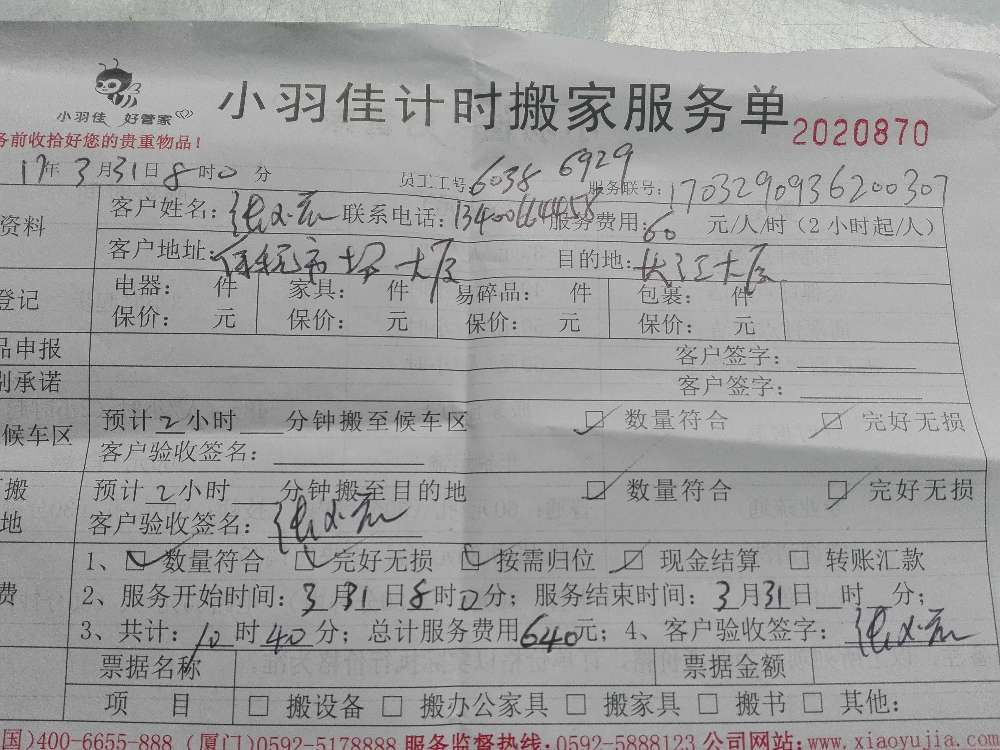 小羽佳 好管家
小羽佳计时搬家服务单 2020870
务前收拾好您的贵重物品！
17年3月31日8时0分 员工工号：6038 6929 服务联号：1703290936200307
资料 客户姓名： 联系电话：13400664458 服务费用：60 元/人/时（2小时起/人）
客户地址： 大厦 目的地：长江大厦
登记 电器： 件 家具： 件 易碎品： 件 包裹： 件
保价： 元 保价： 元 保价： 元 保价： 元
品申报 客户签字：
别承诺 客户签字：
候车区 预计2小时 分钟搬至候车区 数量符合 完好无损
客户验收签名：
搬 预计2小时 分钟搬至目的地 数量符合 完好无损
地 客户验收签名：
1、 数量符合 完好无损 按需归位 现金结算 转账汇款
费 2、服务开始时间：3月31日8时0分；服务结束时间：3月31日 时 分；
3、共计：10时40分；总计服务费用640元；4、客户验收签字：
票据名称 票据金额
项 目 搬设备 搬办公家具 搬家具 搬书 其他：
国)400-6655-888 (厦门)0592-5178888 服务监督热线：0592-5888123 公司网站：www.xiaoyujia.com